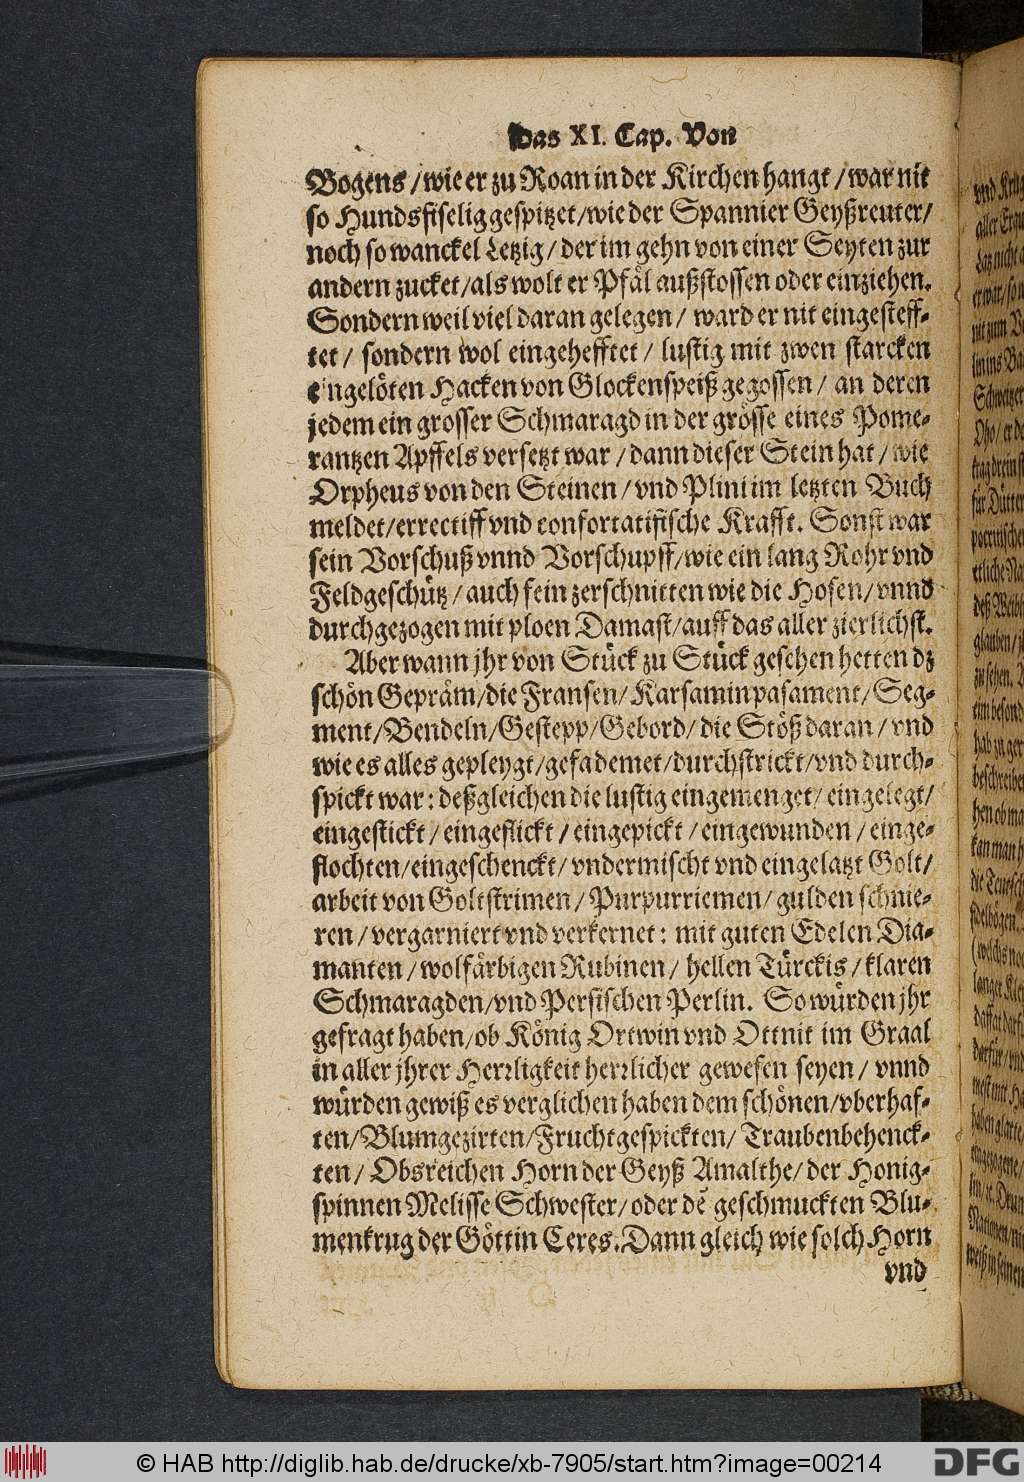 Das XI. Cap. Von
Bogens / wie er zu Roan in der Kirchen hangt / war nit
so Hundsfiselig gespitzet / wie der Spannier Geyßreuter /
noch so wanckel Letzig / der im gehn von einer Seyten zur
andern zucket / als wolt er Pfäl außstossen oder einziehen.
Sondern weil viel daran gelegen / ward er nit eingesteff-
tet / sondern wol eingehefftet / lustig mit zwen starcken
eingelöten Hacken von Glockenspeiß gegossen / an deren
jedem ein grosser Schmaragd in der grösse eines Pome-
rantzen Apffels versetzt war / dann dieser Stein hat / wie
Orpheus von den Steinen / vnd Plini im letzten Buch
meldet / errectiff vnd confortatifische Krafft. Sonst war
sein Vorschuß vnnd Vorschupff / wie ein lang Rohr vnd
Feldgeschütz / auch fein zerschnitten wie die Hosen / vnnd
durchgezogen mit ploen Damast / auff das aller zierlichst.
Aber wann jhr von Stück zu Stück gesehen hetten dz
schön Gepräm / die Fransen / Karsaminpasament / Seg-
ment / Bendeln / Gestepp / Gebord / die Stöß daran / vnd
wie es alles gepleygt / gefademet / durchstrickt / vnd durch-
spickt war : deßgleichen die lustig eingemenget / eingelegt /
eingestickt / eingeflickt / eingepickt / eingewunden / einge-
flochten / eingeschenckt / vndermischt vnd eingelatzt Golt /
arbeit von Goltstrimen / Purpurriemen / gulden schnie-
ren / vergarniert vnd verkernet : mit guten Edelen Dia-
manten / wolfärbigen Rubinen / hellen Türckis / klaren
Schmaragden / vnd Persischen Perlin. So würden jhr
gefragt haben / ob König Ortwin vnd Ottnit im Graal
in aller jhrer Herrligkeit herrlicher gewesen seyen / vnnd
würden gewiß es verglichen haben dem schönen / vberhaf-
ten / Blumgezirten / Fruchtgespickten / Traubenbehenck-
ten / Obsreichen Horn der Geyß Amalthe / der Honig-
spinnen Melisse Schwester / oder dē geschmuckten Blu-
menkrug der Göttin Ceres. Dann gleich wie solch Horn
vnd
© HAB http://diglib.hab.de/drucke/xb-7905/start.htm?image=00214
DFG